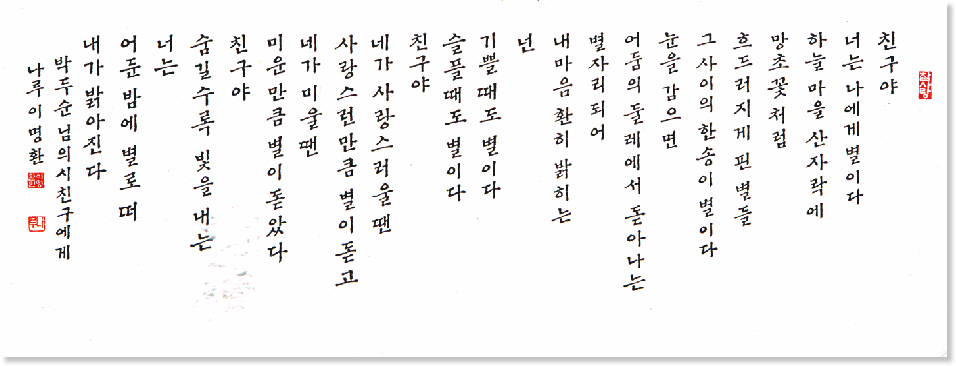 친구야
너는 나에게 별이다
하늘 마을 산자락에
망초꽃처럼
흐드러지게 핀 별들
그 사이의 한 송이 별이다
눈을 감으면
어둠의 둘레에서 돋아나는
별자리 되어
내 마음 환히 밝히는
넌
기쁠 때도 별이다
슬플 때도 별이다
친구야
네가 사랑스러울 땐
사랑스런 만큼 별이 돋고
네가 미울 땐
미운 만큼 별이 돋았다
친구야
숨길수록 빛을 내는
너는
어둔 밤에 별로 떠
내가 밝아진다
박두순님의 시 친구에게
나루 이명환